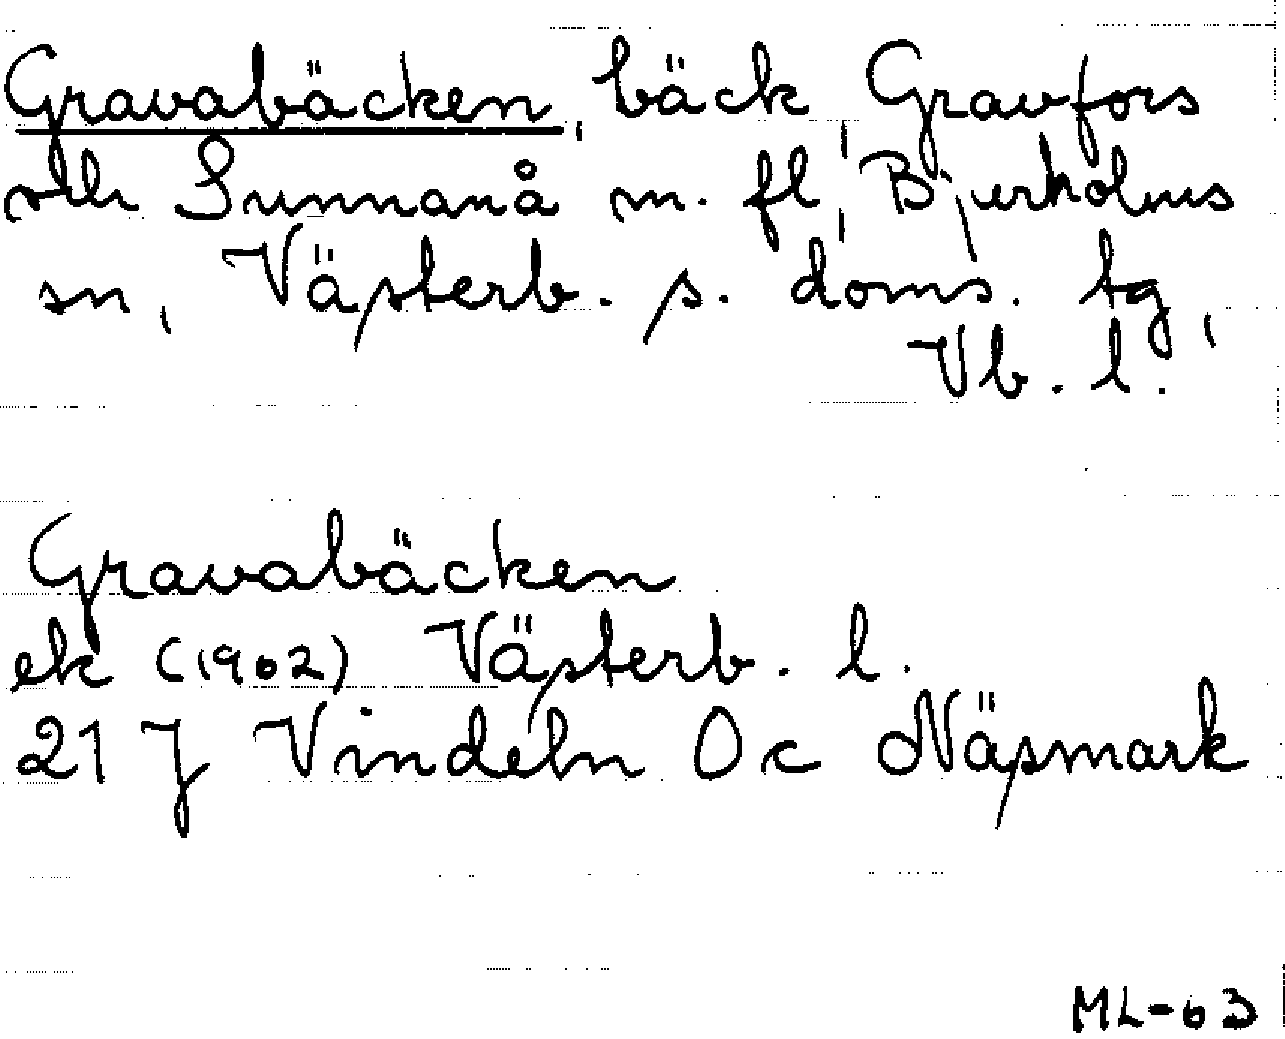 Gravabäcken, bäck, Gravfors
och Sunnanå m. fl, Bjurholms
sn, Västerb. s. doms. tg,
Vb. l.
Gravabäcken
ek (1962) Västerb. l.
21 J Vindeln Oc Näsmark
ML-63